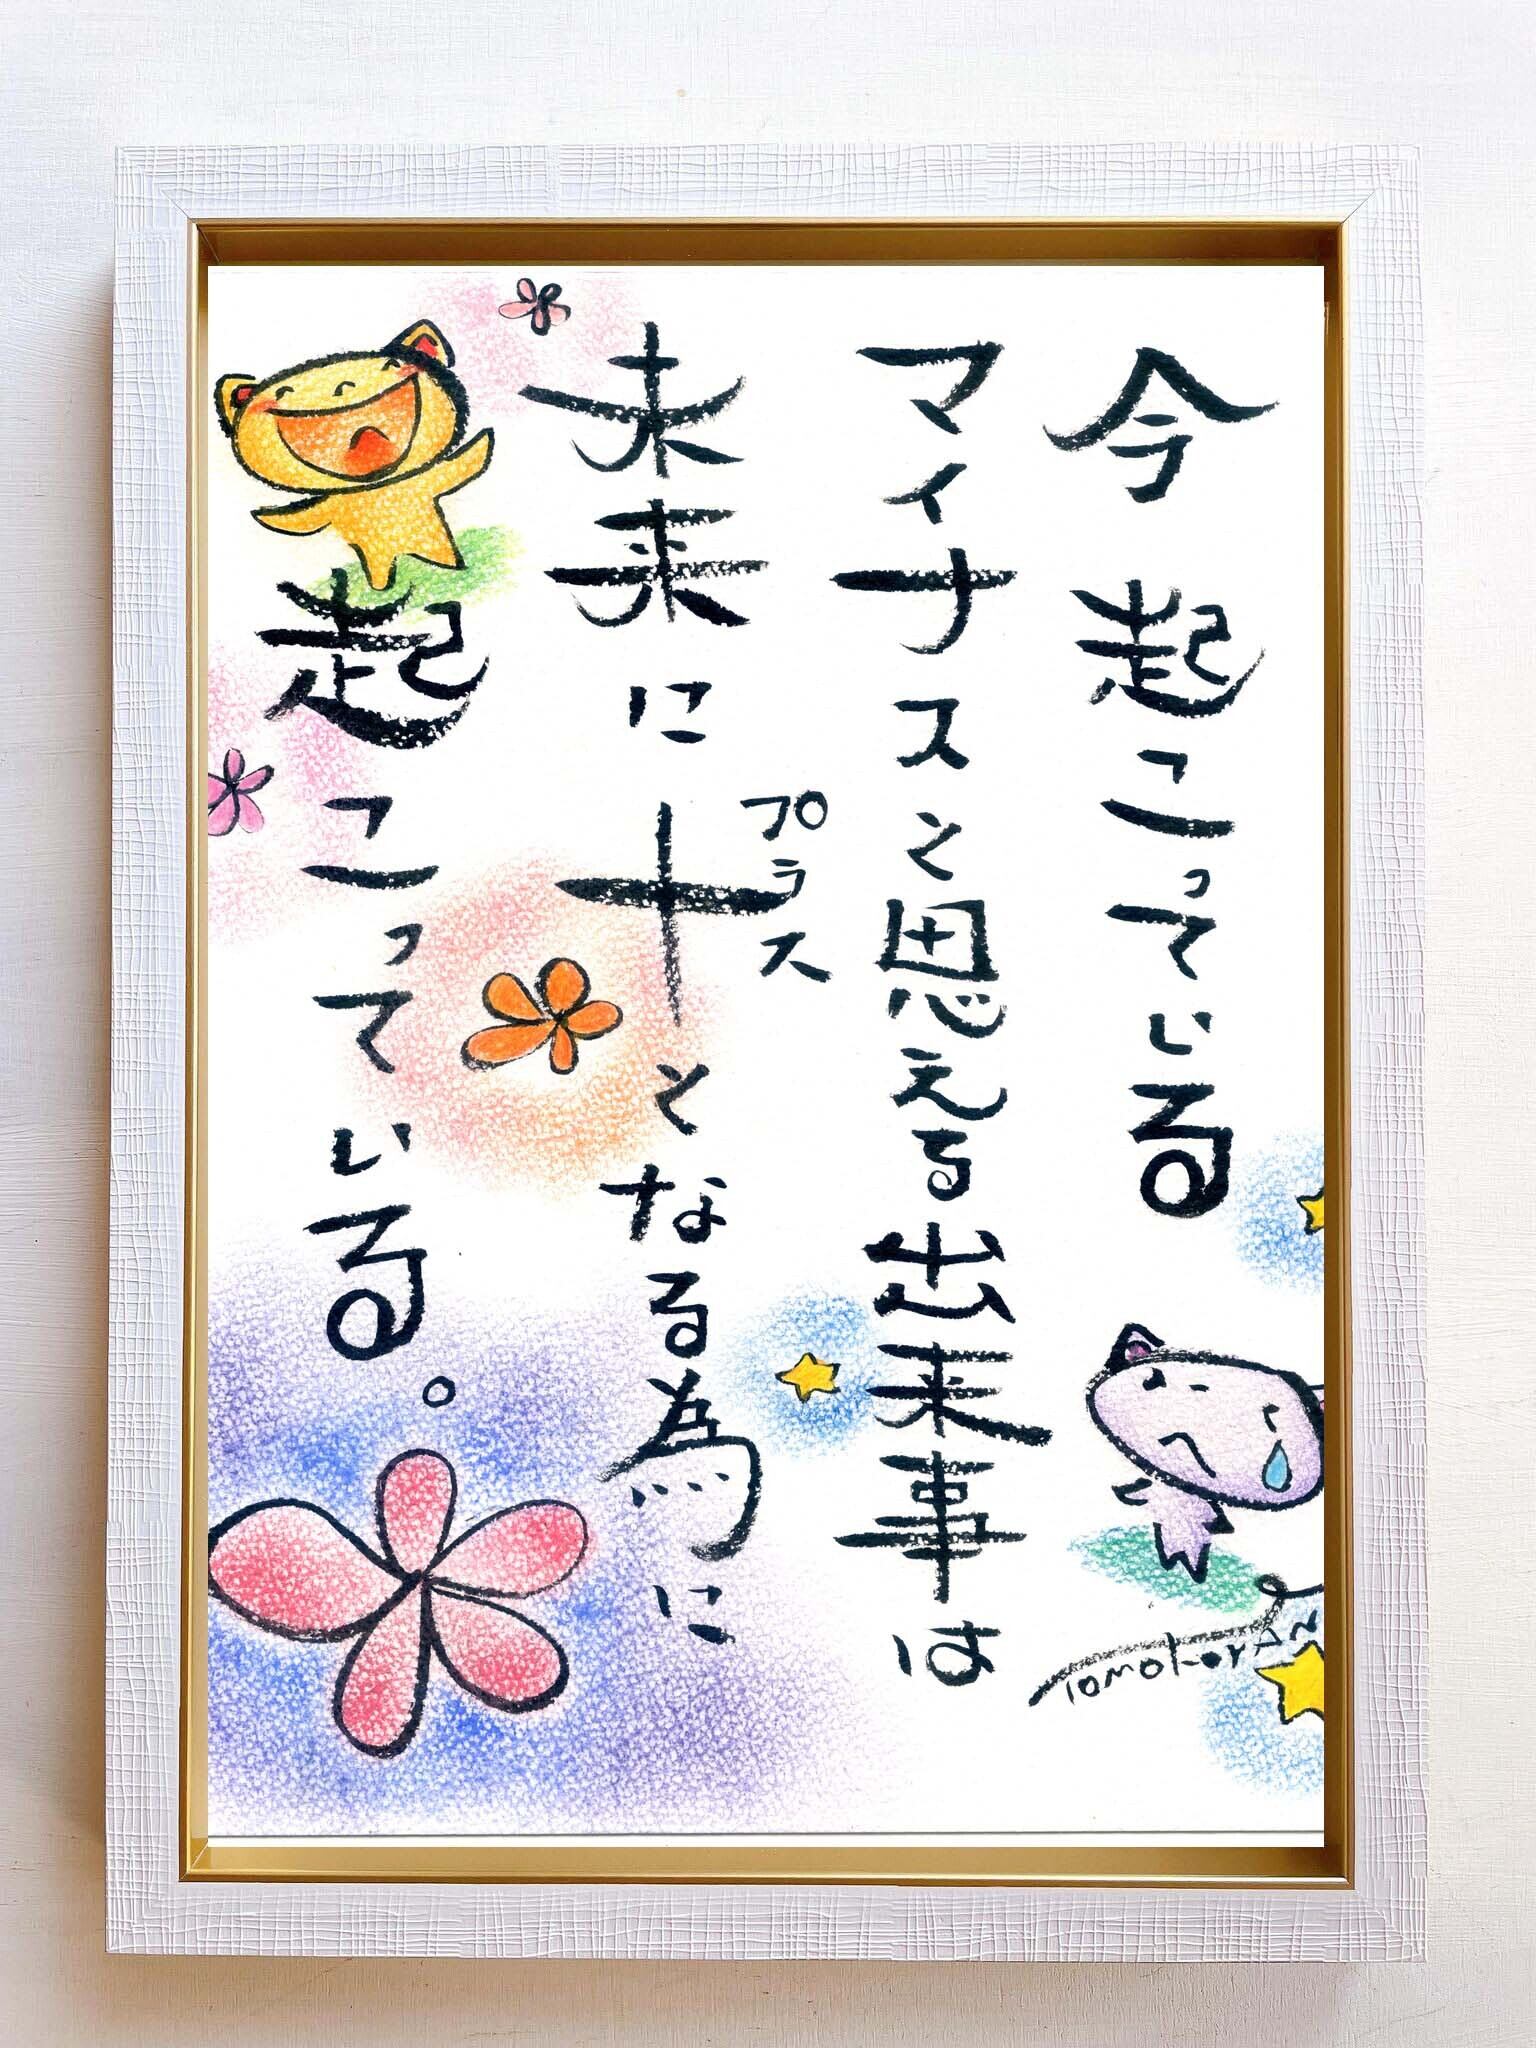 今起こっている
マイナスと思える出来事は
未来に十となる為に
プラス
起こっている。
TOMOKOYAN